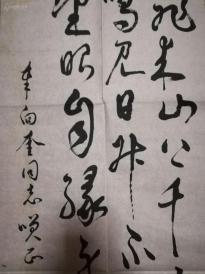 飞来山上千
鸣见日升不
望眼自缘身
奉向奎同志嘆正